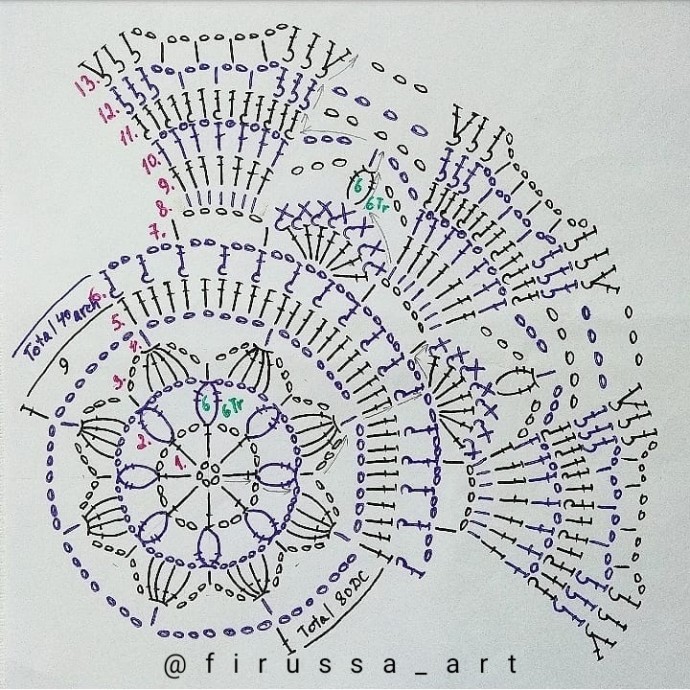 13.
12.
11.
10.
9.
8.
7.
6.
5.
4.
3.
2.
1.
6
6Tr
6
6Tr
Total 40 arch
9
Total 80 DC
@firussa_art